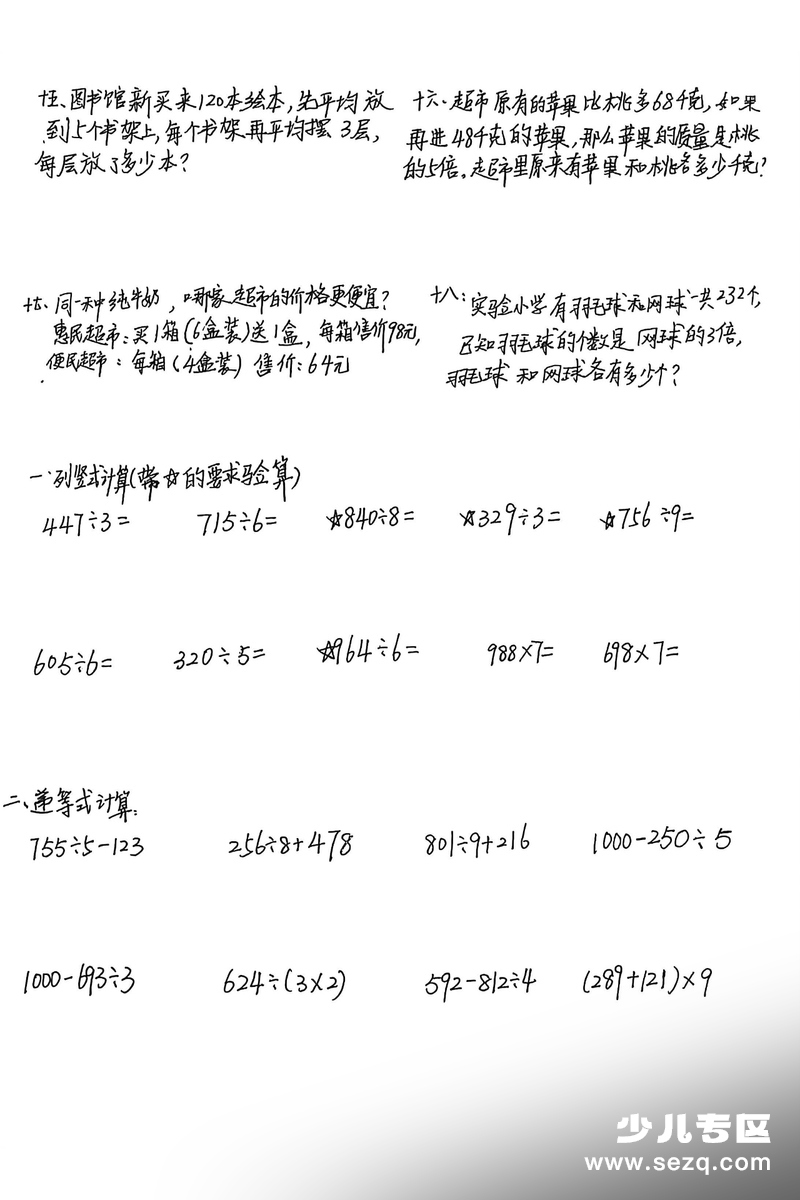 十五、图书馆新买来120本绘本,先平均放
到5个书架上,每个书架再平均摆3层,
每层放了多少本?
十六、超市原有的苹果比桃多68千克,如果
再进48千克的苹果,那么苹果的质量是桃
的5倍。超市里原来有苹果和桃各多少千克?
十七、同一种纯牛奶,哪家超市的价格更便宜?
惠民超市:买1箱(6盒装)送1盒,每箱售价98元,
便民超市:每箱(4盒装)售价:64元
十八:实验小学有羽毛球和网球一共232个,
已知羽毛球的个数是网球的3倍,
羽毛球和网球各有多少个?
一、列竖式计算(带☆的要求验算)
447÷3= 715÷6= ☆840÷8= ☆329÷3= ☆756÷9=
605÷6= 320÷5= ☆964÷6= 988×7= 698×7=
二、递等式计算:
755÷5-123 256÷8+478 801÷9+216 1000-250÷5
1000-693÷3 624÷(3×2) 592-812÷4 (289+121)×9
少儿专区
www.sezq.com